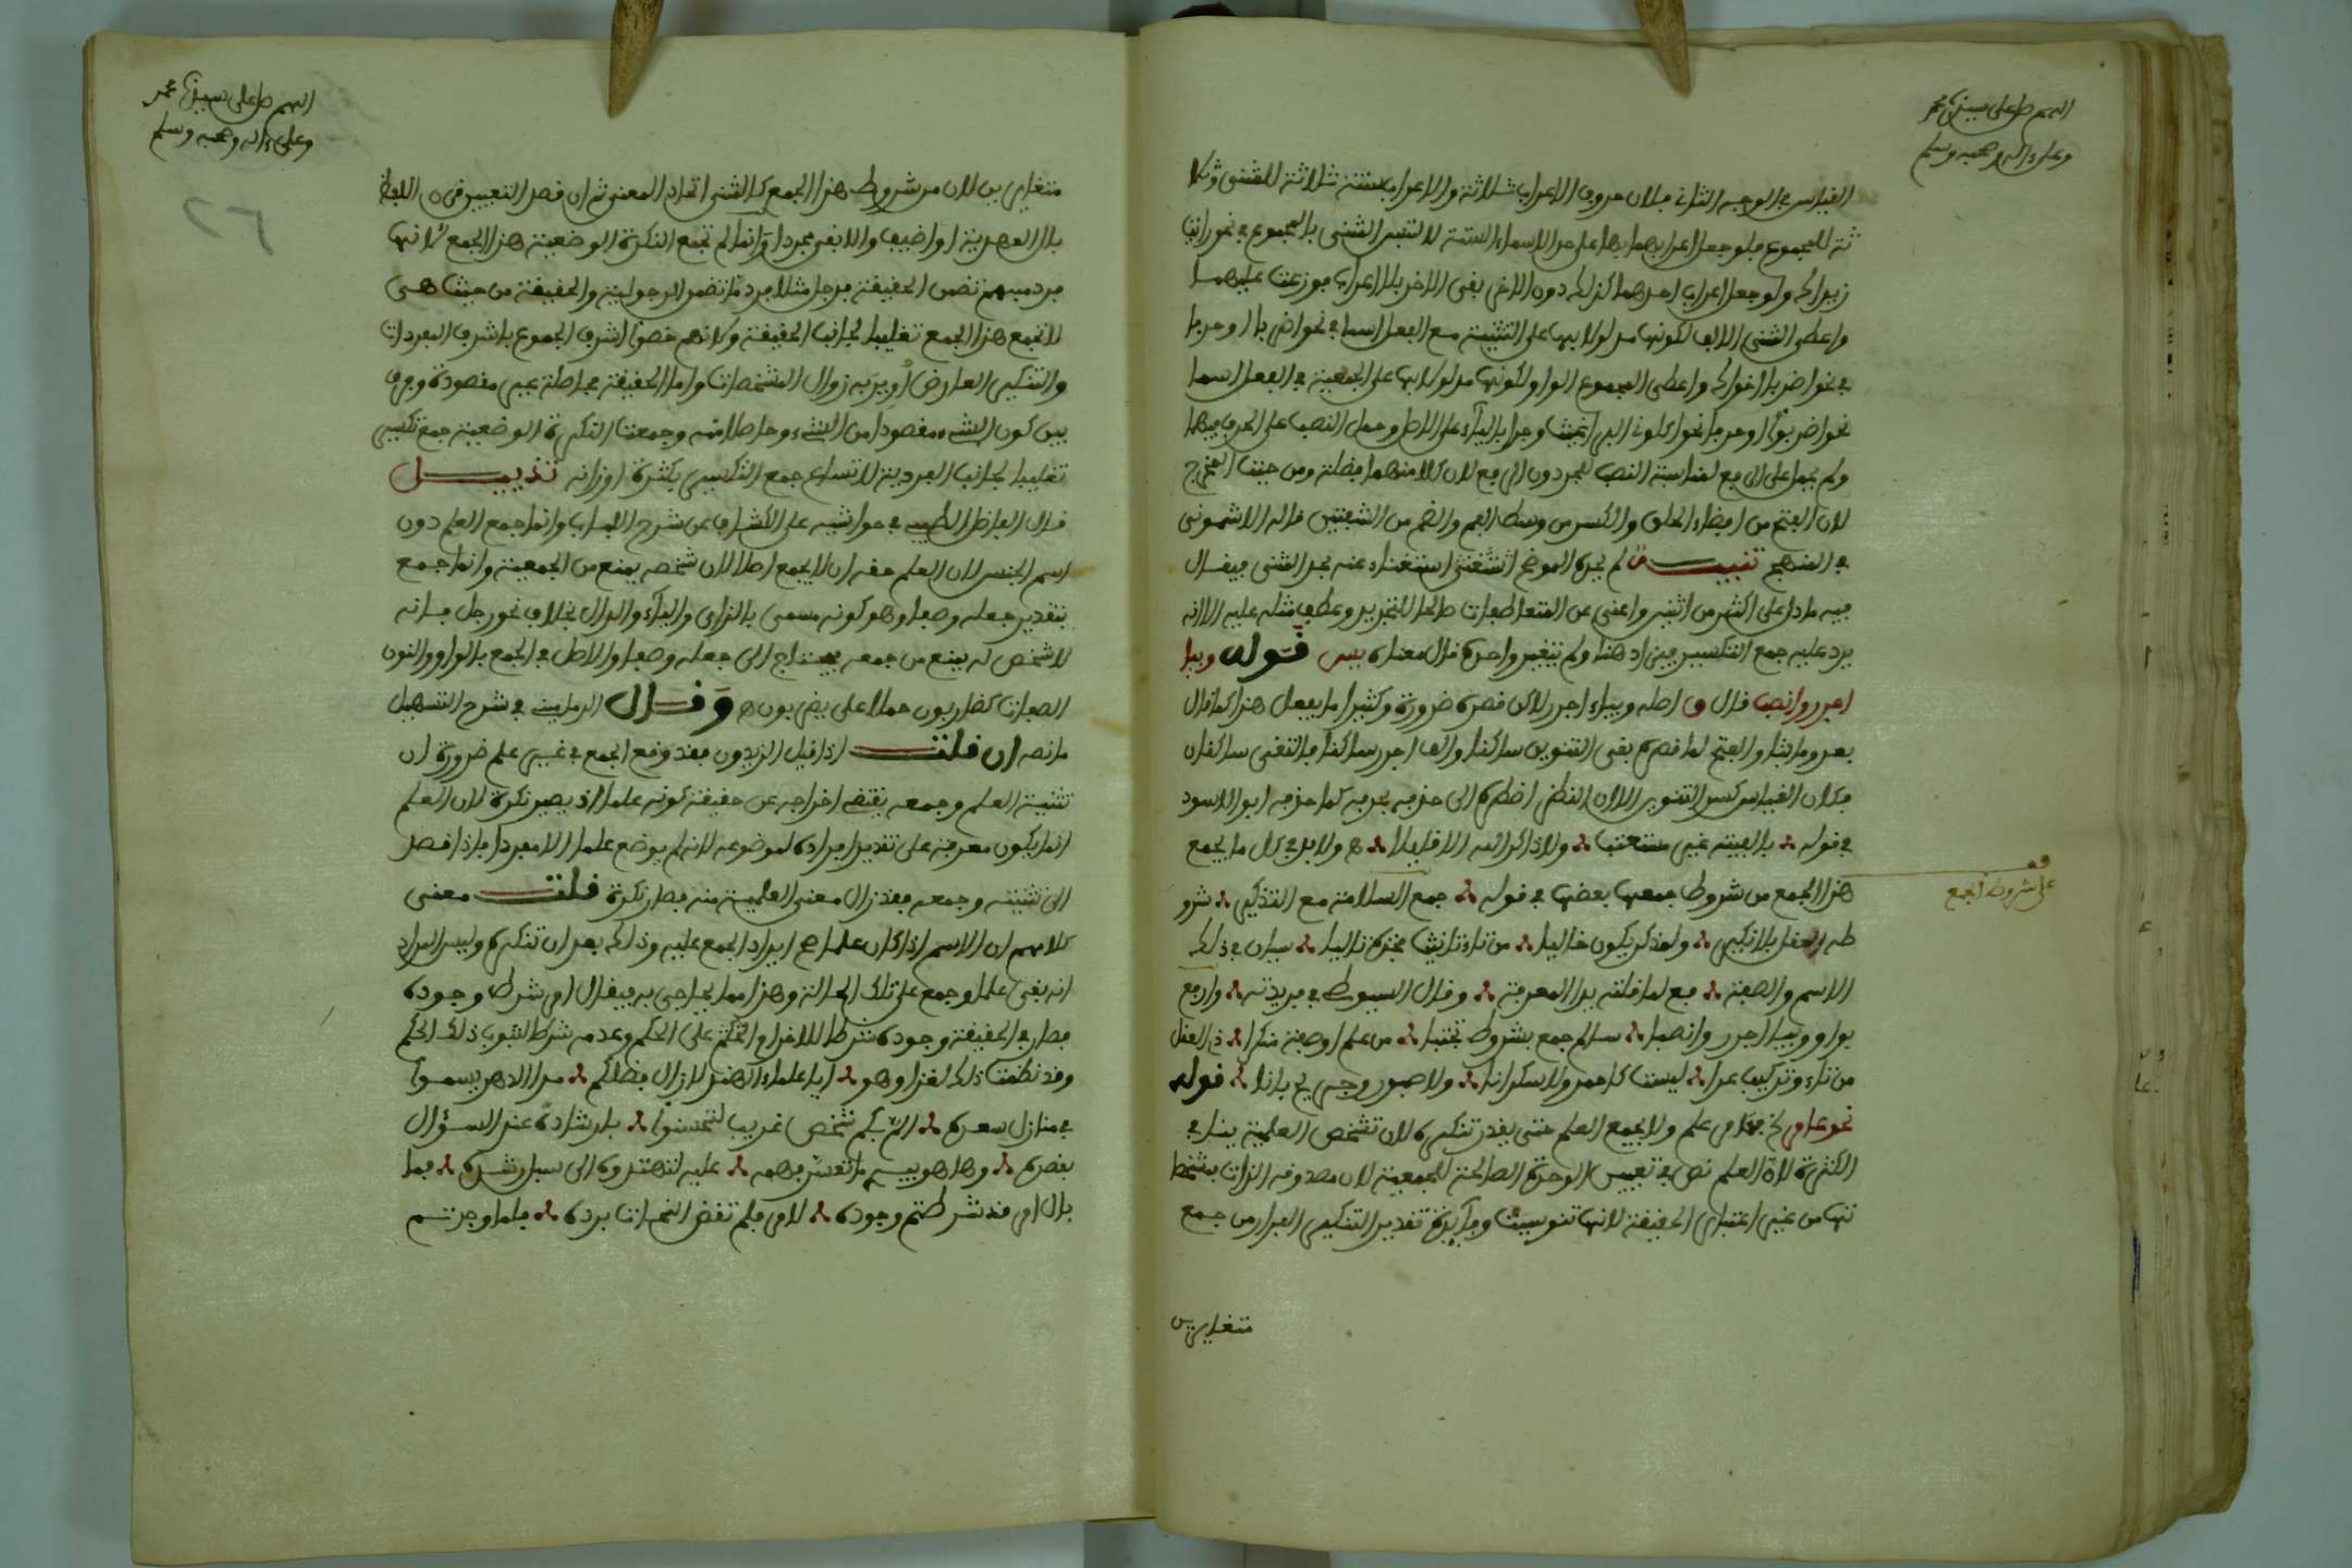 اللهم صل على سيدنا محمد
وعلى ءاله وصحبه وسلم
القياس في الوجه الثاني فلان حروف الاعراب ثلاثة والاعراب ستة ثلاثة للمثنى وثلا
ثة للمجموع فلو جعل اعرابهما بها على حد الاسماء الستة لالتبس المثنى بالمجموع في نحو رايت
زيداك ولو جعل اعراب احدهما كذلك دون الاخر بقي الاخر بلا اعراب فوزعت عليهما
واعطي المثنى الالف لكونها مدلولا بها على التثنية مع الفعل اسما في نحو اضربا وحرفا
في نحو اضربا اخواك واعطي المجموع الواو لكونها مدلولا بها على الجمعية في الفعل اسما
نحو اضربوا وحرفا نحو اكلوني البراغيث وجرا بالياء على الاصل وحمل النصب على الجر فيهما
ولم يحمل على الرفع لمناسبة النصب للجر دون الرفع لان كلا منهما فضلة ومن حيث المخرج
لان الفتح من اقصاء الحلق والكسر من وسط الفم والضم من الشفتين قاله الاشموني
في المنهج تنبيه لم يحد الموضح المثنى استغناء عنه بحد المثنى فيقال
فيه ما دل على اكثر من اثنين واغنى عن المتعاطفات صالحا للتجريد وعطف مثله عليه الا انه
يرد عليه جمع التكسير فيزاد هنا ولم يتغير واحده قال معناه يس قوله وبيا
اجرر وانصب قال اصله وبياء اجرر لاكن قصره ضرورة وكثيرا ما يفعل هذا كما قال
بعد وما بتا والفتح لما قصره بقي التنوين ساكنا والفا اجرر ساكنا فالتقى ساكنان
فكان القياس كسر التنوين الا ان النظم اضطره الى حذفه بحذفه كما حذفه ابو الاسود
في قوله فالفيته غير مستعتب ولا ذاكر الله الا قليلا ه ولا بد في كل ما يجمع
هذا الجمع من شروط جمعها بعضها في قوله جمع السلامة مع التذكير شرو
طه العقل بلا نكير ولمذكر يكون خاليا من تاء تانيث بحذف تاليا سيان في ذلك
الاسم والصفة مع لما قلته يدا المعرفة وقال السيوطي في فريدته وارفع
بواو وبيا اجرر وانصبا سالم جمع بشروط تجتبا من علم او صفة مذكرا ذي العقل
من تاء وتركيب عرا ليست كاحمر ولا سكرانا ولا صبور وجريح بانا قوله
نحو عامر علم ولا يجمع العلم حتى يقدر تنكيره لان تشخص العلمية ينافي
الكثرة لان العلم نص في تعيين الوحدة الصالحة للجمعية لان مصدوقه الذات بمشخصا
تها من غير اعتبار الحقيقة لانها وفايدة تقدير التنكير الفرار من جمع
متغايرين
قف
على شروط الجمع
اللهم صل على سيدنا محمد
وعلى ءاله وصحبه وسلم
٢٦
متغايرين لان من شروط هذا الجمع كالمثنى اتحاد المعنى ثم ان قصد التعيين اللفظ
بال العهدية او اضيف والا بقي مجردا وانما لم تجمع النكرة الوضعية هذا الجمع لانها
فرد مبهم تضمن الحقيقة فرجل مثلا فرد ما تضمن الرجولية والحقيقة من حيث هي
لا تجمع هذا الجمع تغليبا لجانب الحقيقة وكانهم خصوا اشرف الجموع باشرف المفردات
والتنكير العارض اريد به زوال المشخصات واما الحقيقة فحاصلة غير مقصودة وفرق
بين كون الشيء مقصودا من الشيء وحاصلا منه وجمعت النكرة الوضعية جمع تكسير
تغليبا لجانب الفردية لاتساع جمع التكسير بكثرة اوزانه تذييل
قال الفاضل الطيبي في حواشيه على الكشاف عن شرح اللباب وانما جمع العلم دون
اسم الجنس لان العلم حقه ان لا يجمع اصلا لان تشخصه يمنع من الجمعية وانما جمع
بتقدير جعله وصفا وهو كونه مسمى بالزاي والياء والدال بخلاف نحو رجل فانه
لا تشخص له يمنع من جمعه فيحتاج الى جعله وصفا والاصل في الجمع بالواو والنون
الصفات كضاربون حملا على يضربون ه وقال الدماميني في شرح التسهيل
ما نصه ان قلت اذا قيل الزيدون فقد وقع الجمع في غير علم ضرورة ان
تثنية العلم وجمعه يقتضي اخراجه عن حقيقة كونه علما اذ يصير نكرة لان العلم
انما يكون معرفة على تقدير افراده لموضوعه لانه لم يوضع علما الا مفردا فاذا قصد
الى تثنيته وجمعه فقد زال معنى العلمية منه فصار نكرة قلت معنى
كلامهم ان الاسم اذا كان علما صح ايراد الجمع عليه وذلك بعد ان تنكره وليس المراد
انه بقي علما وجمع على تلك الحالة وهذا مما يحاجى به فيقال اي شرط وجوده
فصار في الحقيقة وجوده شرطا للاقدام على الحكم وعدمه شرط لثبوت ذلك الحكم
وقد نظمت ذلك لغزا وهو ايا علماء الهند لا زال فضلكم مدا الدهر يسموا
في منازل سعده الم بكم شخص غريب لتحسنوا بارشاده عند السؤال
بقصده وها هو يبدي ما تعسر فهمه عليه لتهدوه الى سبل رشده فما
بال امر قد شرطتم وجوده لامر فلم تقض النحاة برده فلما وجدتم